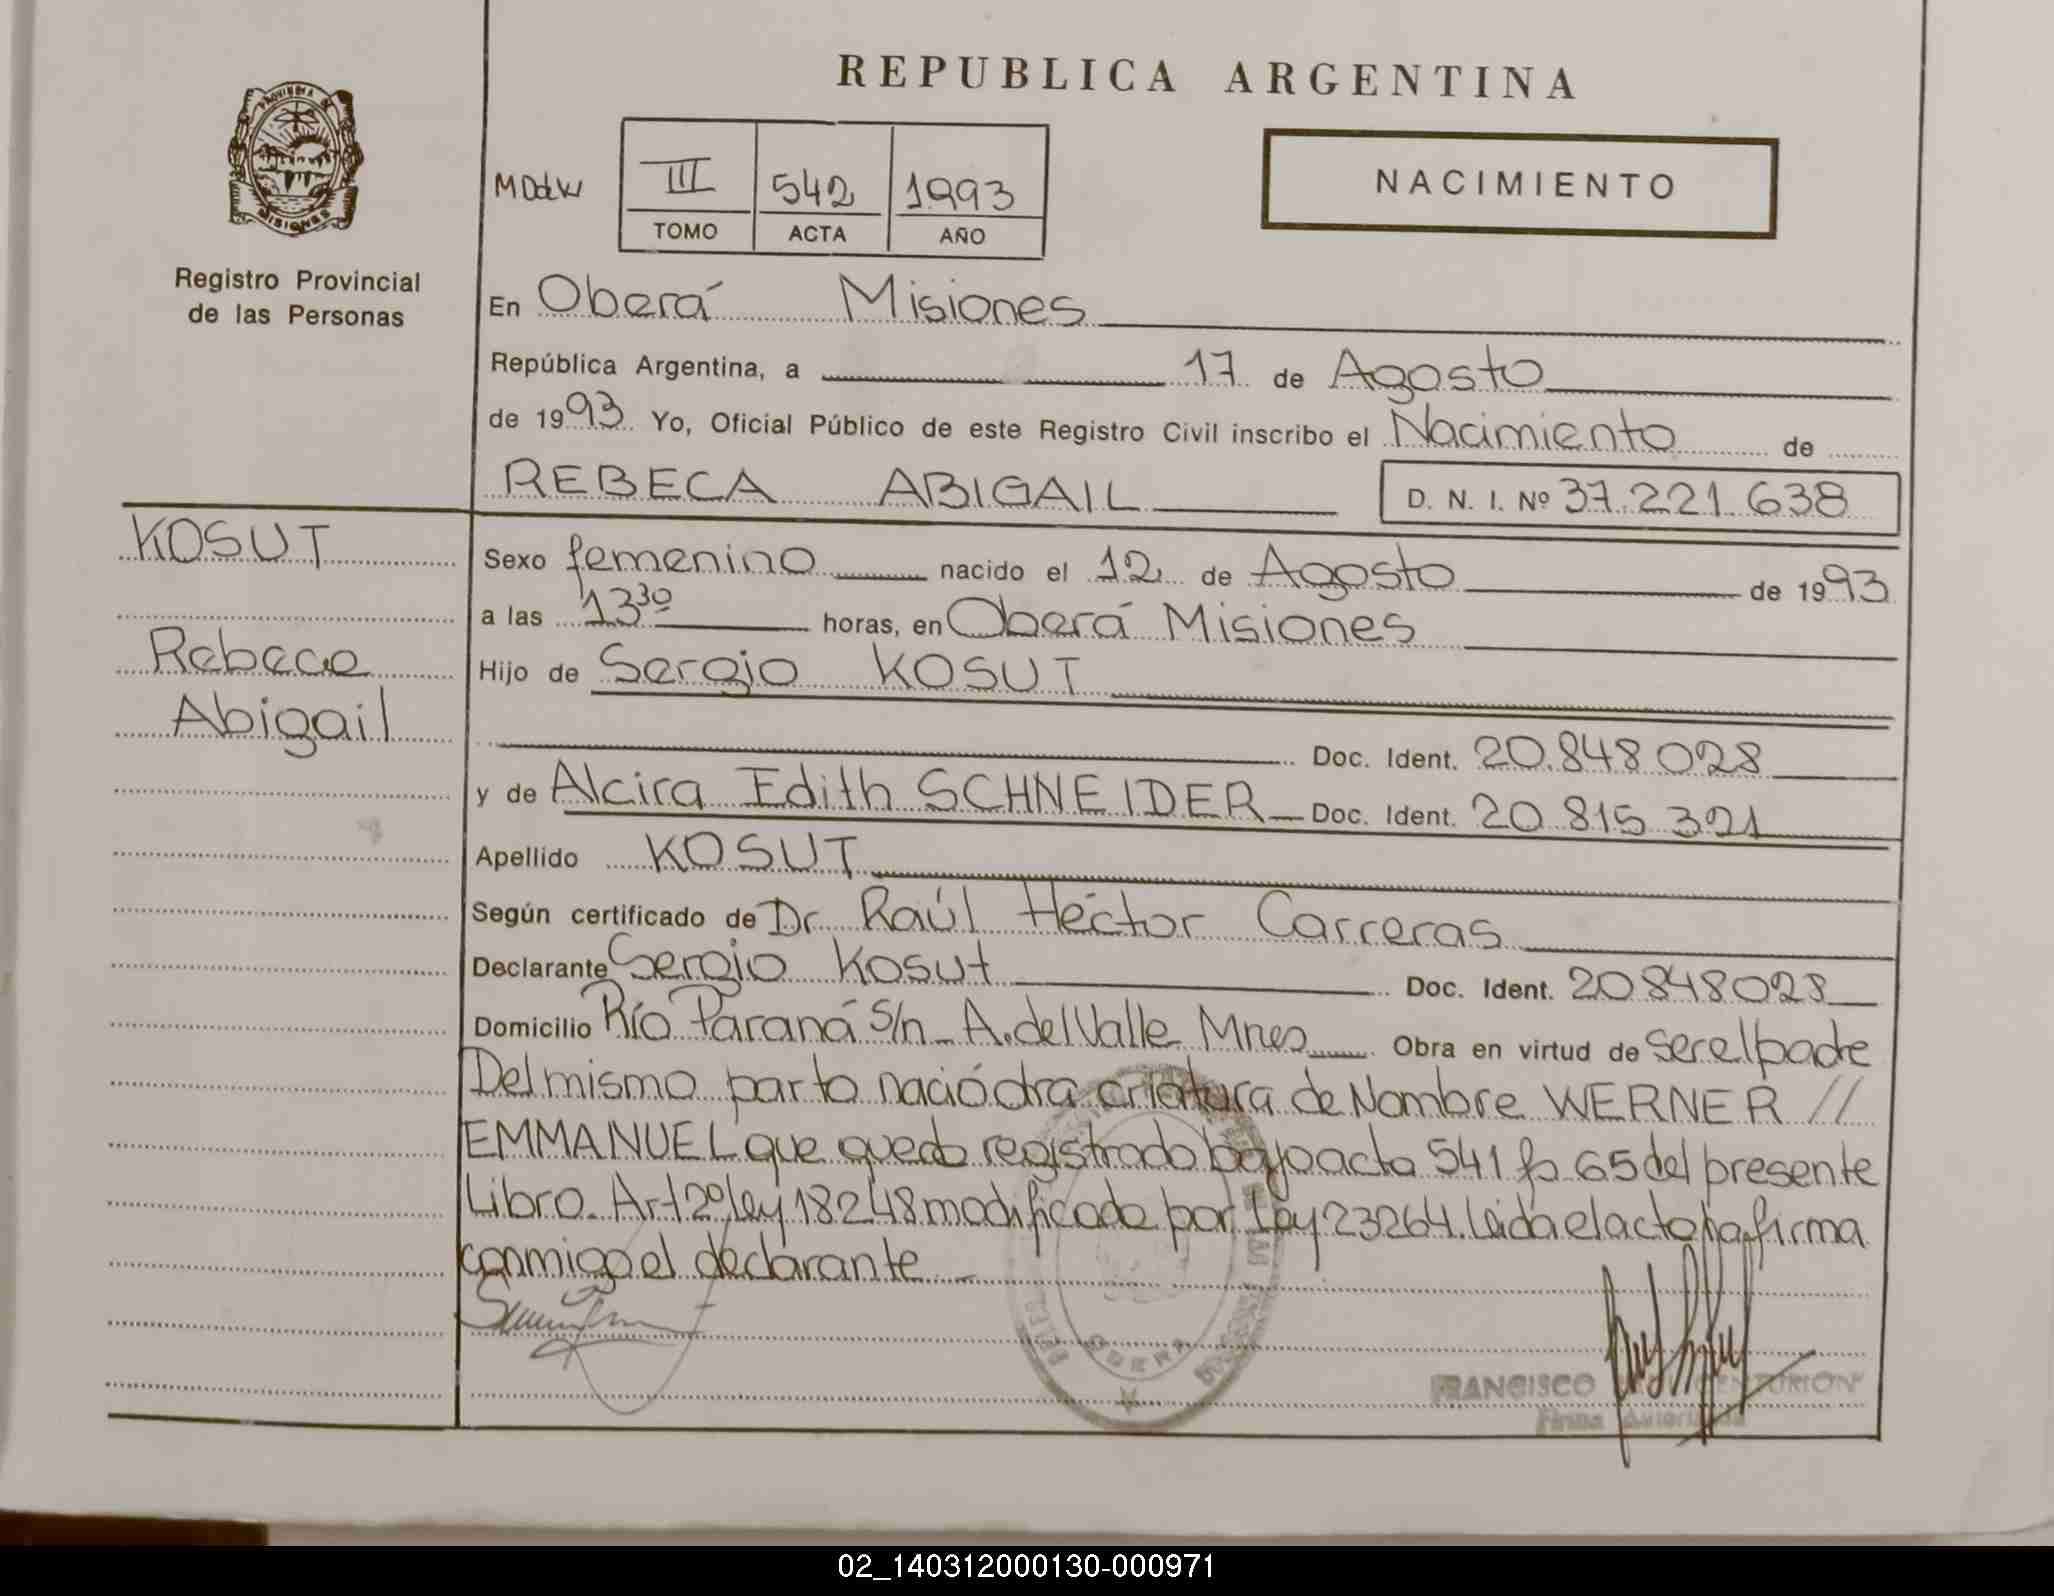 REPUBLICA ARGENTINA
PROVINCIA DE
MISIONES
Registro Provincial
de las Personas
NACIMIENTO
III 542 1993
TOMO ACTA AÑO
En Oberá Misiones
República Argentina, a 17 de Agosto
de 1993. Yo, Oficial Público de este Registro Civil inscribo el Nacimiento de
REBECA ABIGAIL D. N. I. Nº 37.221.638
KOSUT
Rebeca
Abigail
Sexo femenino nacido el 12 de Agosto de 1993
a las 13 30 horas, en Oberá Misiones
Hijo de Sergio KOSUT
Doc. Ident. 20.848.028
y de Alcira Edith SCHNEIDER Doc. Ident. 20.815.321
Apellido KOSUT
Según certificado de Dr. Raúl Héctor Carreras
Declarante Sergio Kosut Doc. Ident. 20848028
Domicilio Río Paraná S/n A. del Valle Mnes Obra en virtud de ser el padre
Del mismo parto nació otra criatura de Nombre WERNER //
EMMANUEL que quedo registrado bajo acta 541 fo 65 del presente
Libro. Art 2º ley 18248 modificado por Ley 23264. Leída el acta la firma
conmigo el declarante
OBERA
FRANCISCO CENTURION
Firma Autorizada
02_140312000130-000971